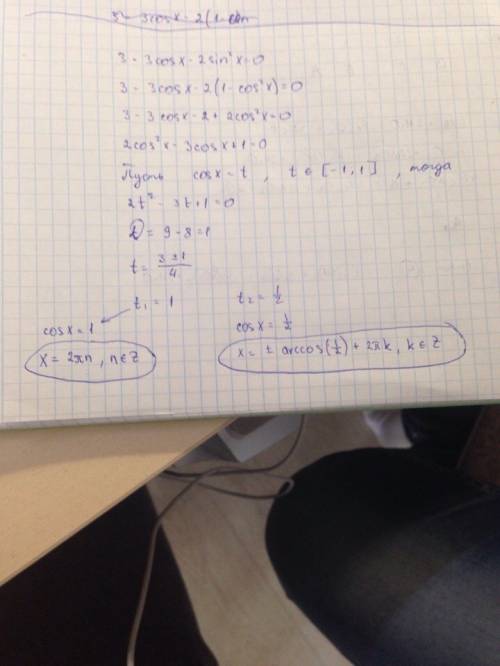 3 - 3cosx - 2(1 - cos
3 - 3cosx - 2sin²x = 0
3 - 3cosx - 2(1 - cos²x) = 0
3 - 3cosx - 2 + 2cos²x = 0
2cos²x - 3cosx + 1 = 0
Пусть cosx = t, t ∈ [-1, 1], тогда
2t² - 3t + 1 = 0
D = 9 - 8 = 1
t = (3 ± 1)/4
t₁ = 1
cosx = 1
x = 2πn, n ∈ Z
t₂ = 1/2
cosx = 1/2
x = ± arccos(1/2) + 2πk, k ∈ Z